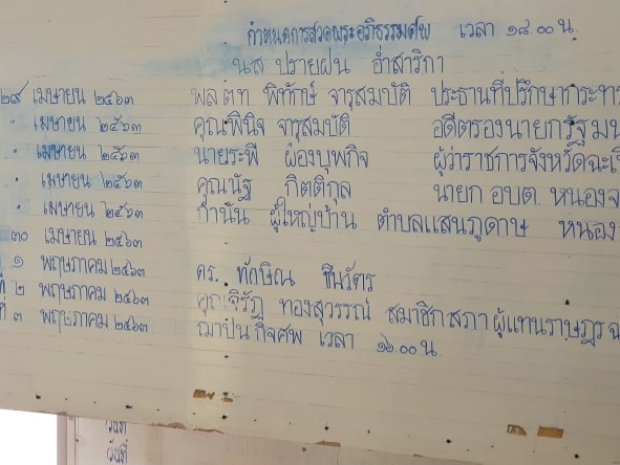 กำหนดการสวดพระอภิธรรมศพ เวลา ๑๘.๐๐ น.
นส ปรายฝน อ่ำสาริกา
๒๙ เมษายน ๒๕๖๓ พล.ต.ท. พิทักษ์ จารุสมบัติ ประธานที่ปรึกษากระทร
" เมษายน ๒๕๖๓ คุณพินิจ จารุสมบัติ อดีตรองนายกรัฐมน
" เมษายน ๒๕๖๓ นายระพี ผ่องบุพกิจ ผู้ว่าราชการจังหวัดฉะเ
" เมษายน ๒๕๖๓ คุณนัฐ กิตติกุล นายก อบต. หนองจ
" เมษายน ๒๕๖๓ กำนัน ผู้ใหญ่บ้าน ตำบลแสนภูดาษ หนอง
๓๐ เมษายน ๒๕๖๓
๑ พฤษภาคม ๒๕๖๓ ดร. ทักษิณ ชินวัตร
ที่ ๒ พฤษภาคม ๒๕๖๓ คุณจิรัฏ ทองสุวรรณ์ สมาชิกสภาผู้แทนราษฎร ฉ
ที่ ๓ พฤษภาคม ๒๕๖๓ ฌาปนกิจศพ เวลา ๑๖.๐๐ น.
วันที่
วันที่